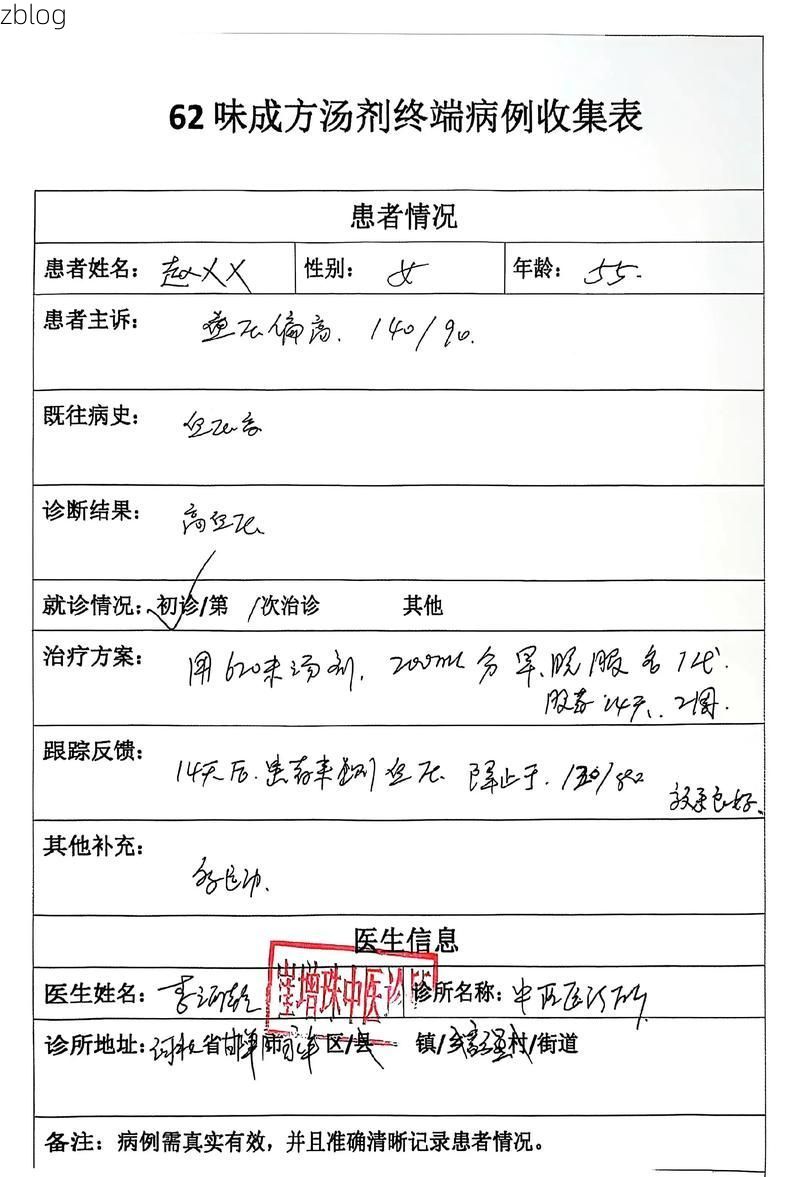 zblog
62味成方汤剂终端病例收集表
患者情况
患者姓名：赵XX 性别：女 年龄：55.
患者主诉：血压偏高. 140/90.
既往病史：血压高
诊断结果：高血压.
就诊情况：初诊/第 /次治诊 其他
治疗方案：用620味汤剂. 200ml 分早.晚服各1代.
服药14天. 2周.
跟踪反馈：14天后. 患者来量测血压. 降止于. 130/82
效果良好.
其他补充：多运动.
医生信息
医生姓名：李 崔增珠中医诊所 诊所名称：中医诊所
诊所地址：河北省邯郸市 区/县 镇/乡 村/街道
备注：病例需真实有效，并且准确清晰记录患者情况。